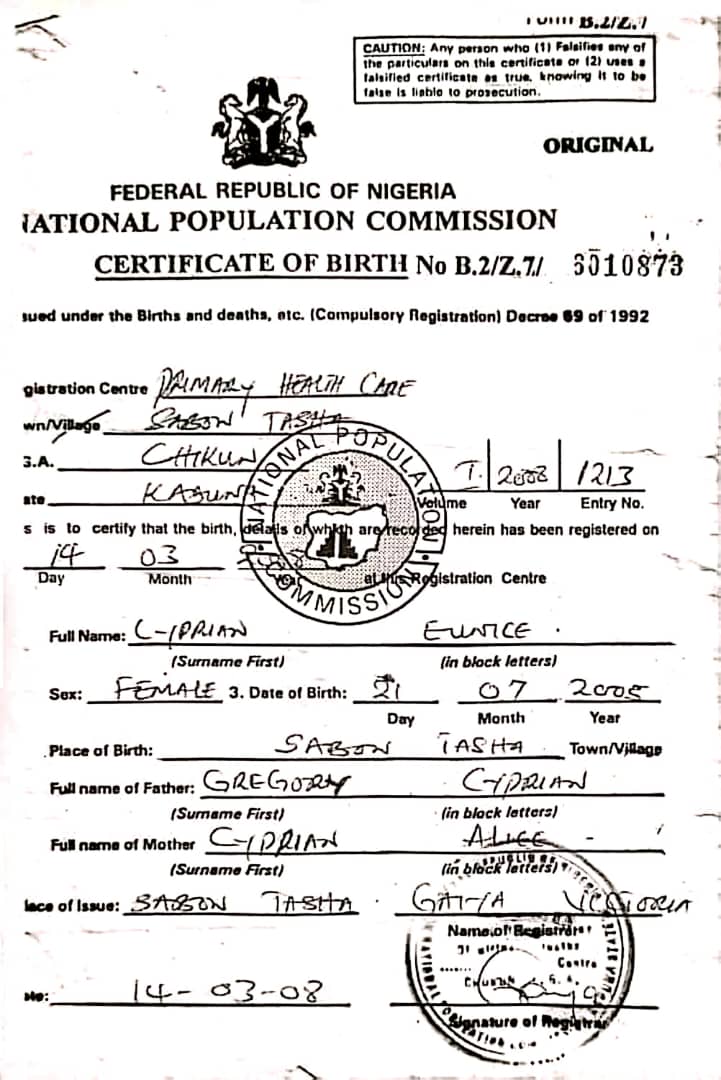 B.2/Z.7
CAUTION: Any person who (1) Falsifies any of
the particulars on this certificate or (2) uses a
falsified certificate as true, knowing it to be
false is liable to prosecution.
ORIGINAL
FEDERAL REPUBLIC OF NIGERIA
NATIONAL POPULATION COMMISSION
CERTIFICATE OF BIRTH No B.2/Z.7/ 3010873
sued under the Births and deaths, etc. (Compulsory Registration) Decree 69 of 1992
gistration Centre PRIMARY HEALTH CARE
wn/Village SABON TASHA
G.A. CHIKUN
I 2008 1213
ate KADUNA
Volume Year Entry No.
NATIONAL POPULATION COMMISSION
s is to certify that the birth, details of which are recorded herein has been registered on
14 03
Day Month Year at this Registration Centre
Full Name: CYPRIAN EUNICE
(Surname First) (in block letters)
Sex: FEMALE 3. Date of Birth: 21 07 2005
Day Month Year
Place of Birth: SABON TASHA Town/Village
Full name of Father: GREGORY CYPRIAN
(Surname First) (in block letters)
Full name of Mother CYPRIAN ALICE
(Surname First) (in block letters)
lace of Issue: SABON TASHA GAIYA VICTORIA
Name of Registrar
Centre
14-03-08
Signature of Registrar